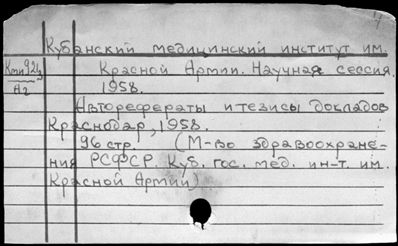 Кубанский медицинский институт им.
Красной Армии. Научная сессия.
1958.
Авторефераты и тезисы докладов
Краснодар, 1958.
96 стр. (М-во здравоохране-
ния РСФСР. Куб. гос. мед. ин-т. им.
Красной Армии)